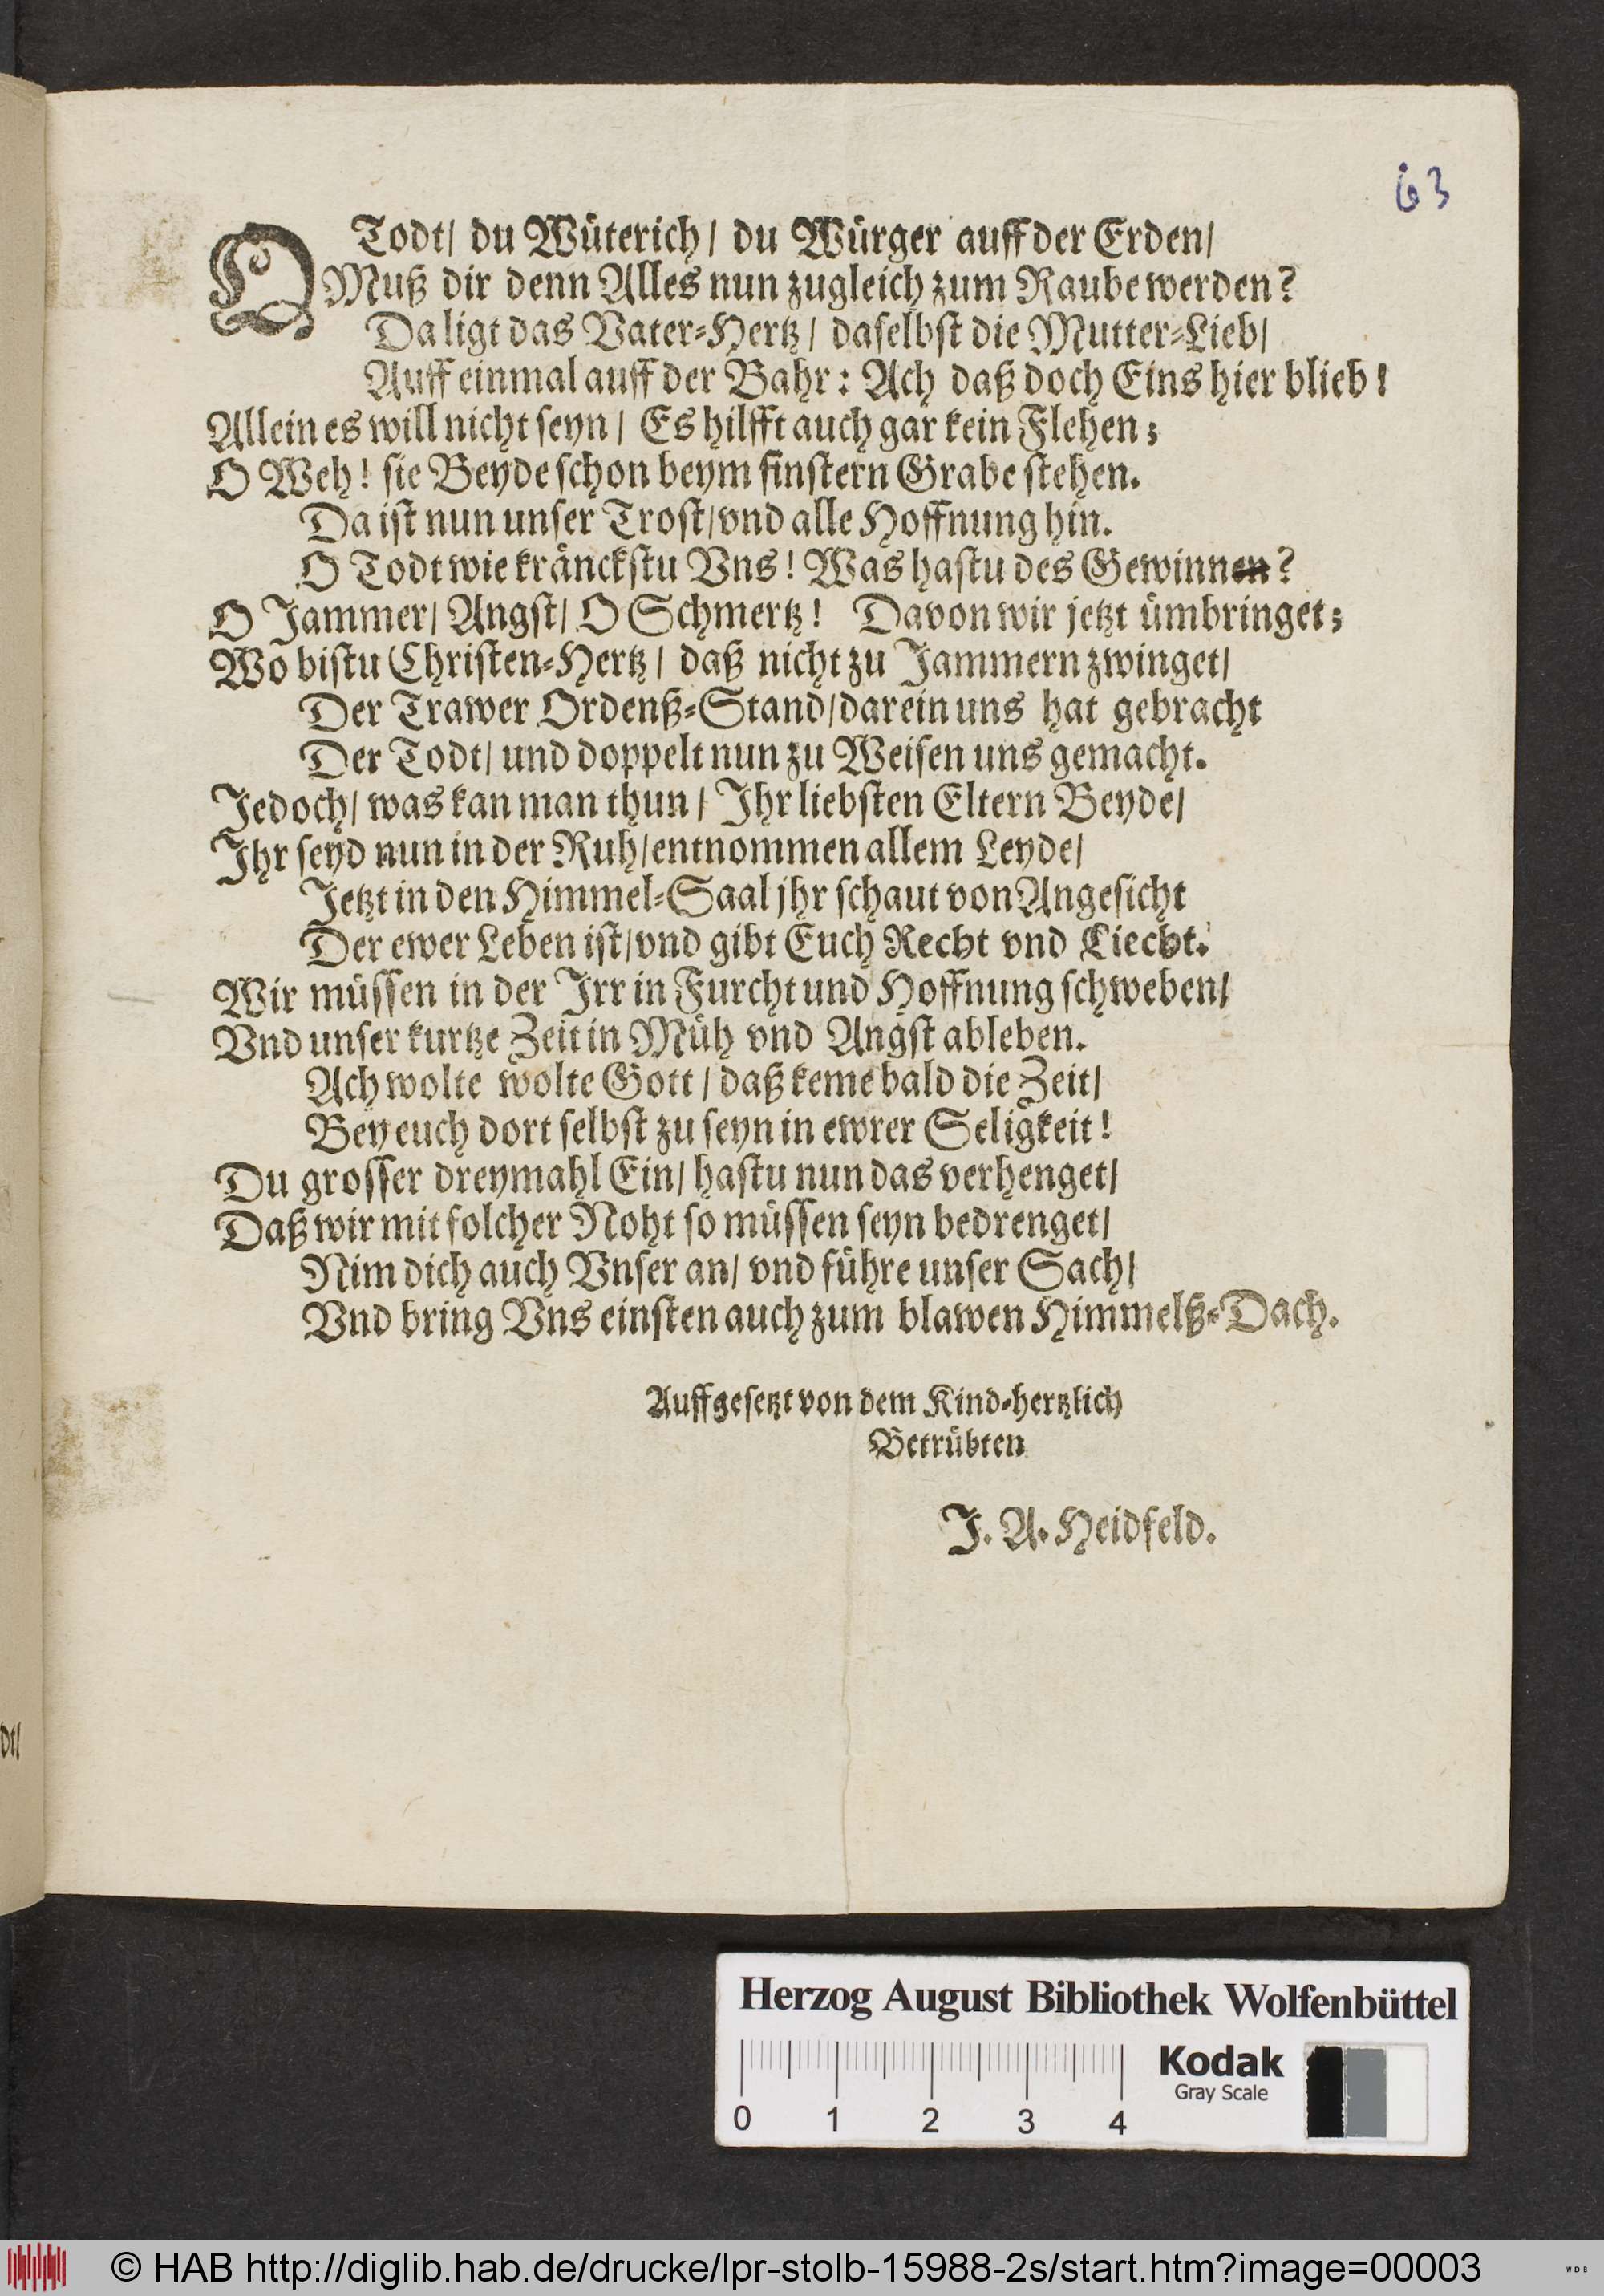 63
O Todt/ du Wüterich/ du Würger auff der Erden/
Muß dir denn Alles nun zugleich zum Raube werden?
Da ligt das Vater-Hertz/ daselbst die Mutter-Lieb/
Auff einmal auff der Bahr: Ach daß doch Eins hier blieb!
Allein es will nicht seyn/ Es hilfft auch gar kein Flehen;
O Weh! sie Beyde schon beym finstern Grabe stehen.
Da ist nun unser Trost/ vnd alle Hoffnung hin.
O Todt wie kränckstu Vns! Was hastu des Gewinnen?
O Jammer/ Angst/ O Schmertz! Davon wir jetzt ümbringet;
Wo bistu Christen-Hertz/ daß nicht zu Jammern zwinget/
Der Trawer Ordenß-Stand/ darein uns hat gebracht
Der Todt/ und doppelt nun zu Weisen uns gemacht.
Jedoch/ was kan man thun/ Ihr liebsten Eltern Beyde/
Ihr seyd nun in der Ruh/ entnommen allem Leyde/
Jetzt in den Himmel-Saal jhr schaut von Angesicht
Der ewer Leben ist/ vnd gibt Euch Recht vnd Liecht.
Wir müssen in der Irr in Furcht und Hoffnung schweben/
Vnd unser kurtze Zeit in Müh vnd Angst ableben.
Ach wolte wolte Gott/ daß keme bald die Zeit/
Bey euch dort selbst zu seyn in ewrer Seligkeit!
Du grosser dreymahl Ein/ hastu nun das verhenget/
Daß wir mit solcher Noht so müssen seyn bedrenget/
Nim dich auch Vnser an/ vnd führe unser Sach/
Vnd bring Vns einsten auch zum blawen Himmelß-Dach.
Auffgesetzt von dem Kind-hertzlich
Betrübten
J. A. Heidfeld.
dt/
Herzog August Bibliothek Wolfenbüttel
Kodak
Gray Scale
0 1 2 3 4
© HAB http://diglib.hab.de/drucke/lpr-stolb-15988-2s/start.htm?image=00003
WDB